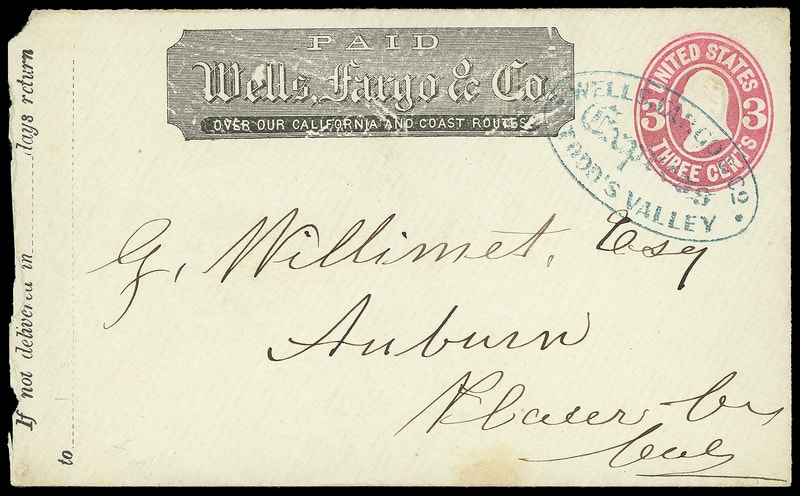 PAID
Wells, Fargo & Co.
OVER OUR CALIFORNIA AND COAST ROUTES
UNITED STATES
3 3
THREE CENTS
WELLS FARGO & CO.
Express
TODD'S VALLEY
G. Willimet, Esq
Auburn
Placer Co
Cal
If not delivered in days return
to